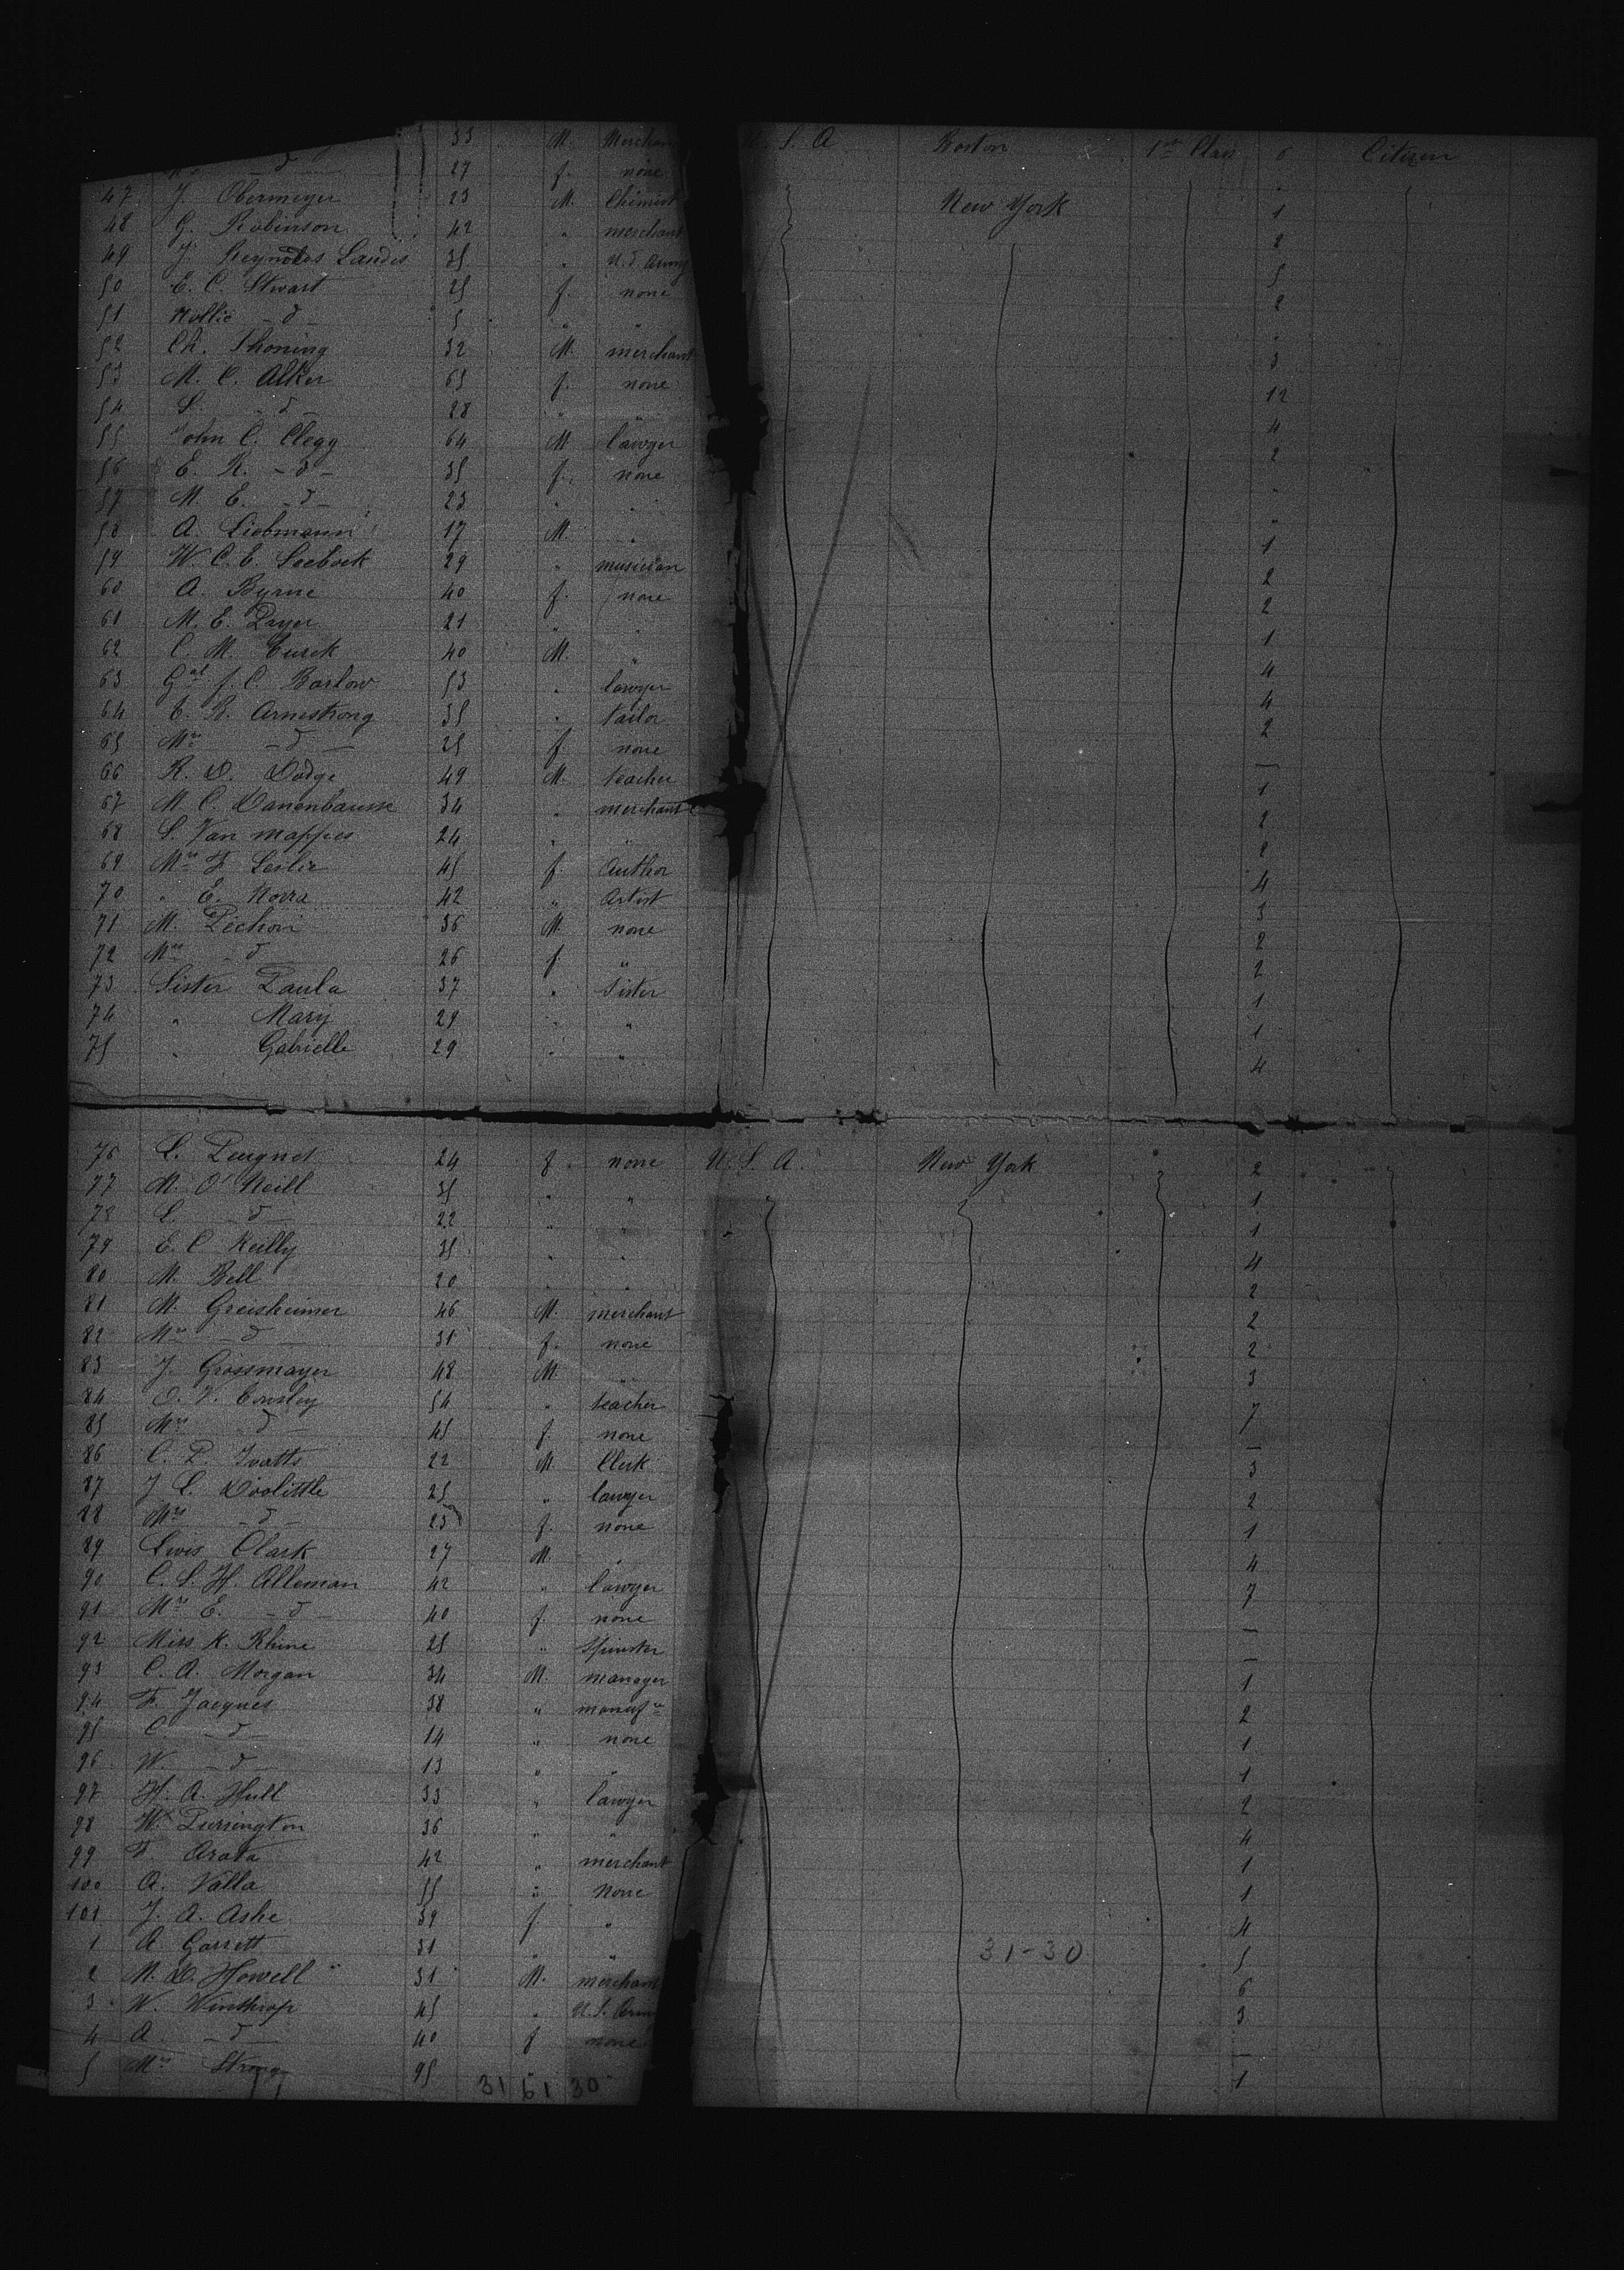 33 M. Merchan S. A. Boston 1st Class 6 Citizen
d 27 f. none
47 J. Obermeyer 23 M. Chimist New York 1
48 G. Robinson 42 " merchant 2
49 J. Reynolds Landis 35 " U.S. Army 5
50 E. C. Stwart 25 f. none 2
51 Nollie - d - 5 " "
52 Ch. Thoning 32 M. merchant 3
53 M. C. Alker 65 f. none 12
54 S. - d - 28 " " 4
55 John C. Clegg 64 M. lawyer 2
56 E. R. - d - 35 f. none "
57 M. E. - d - 23 " " "
58 A. Liebmann 17 M. " 1
59 W. C. E. Seeboek 29 " musician 2
60 A. Byrne 40 f. none 2
61 M. E. Pryer 21 " " 1
62 C. M. 40 M. " 4
63 Gal f. C. Barlow 53 " lawyer 4
64 E. R. Armstrong 35 " tailor 2
65 Mrs - d - 25 f none —
66 R. D. Dodge 49 M. teacher 1
67 M. C. 34 " merchant 2
68 S. Van mappes 24 " " 2
69 Mrs F Leslie 45 f. Author 4
70 " E. 42 " Artist 3
71 M. Pechon 36 M. none 2
72 Mrs - d 26 f " 2
73 Sister Paula 37 " Sister 1
74 " Mary 29 " " 1
75 " Gabrielle 29 " " 4
76 L. Peugnet 24 f. none U. S. A. New York 2
77 M. O'Neill 35 " " 1
78 L. - d - 22 " " 1
79 E. C Reilly 35 " " 4
80 M. Bell 20 " " 2
81 M. Greisheimer 46 M. merchant 2
82 Mrs - d - 31 f. none 2
83 J. Grossmayer 48 M. " 3
84 O. V. 54 " teacher 7
85 Mrs d - 45 f. none —
86 C. P. Ivatts 22 M Clerk 3
87 J L. Doolittle 25 " lawyer 2
88 Mrs - d - 23 f. none 1
89 Lwis Clark 27 M. " 4
90 C. L. H. Alleman 42 " lawyer 7
91 Mrs E. - d - 40 f. none —
92 Miss K. Rhine 25 " Spinster —
93 C. A. Morgan 34 M. manager 1
94 F. Jacques 38 " manufr 2
95 C. - d - 14 " none 1
96 W. - d - 13 " " 1
97 H. A. Hull 33 " lawyer 2
98 W. Purrington 36 " " 4
99 F. Arata 42 " merchant 1
100 A. Valla 55 " None 1
101 J. A. Ashe 39 f " 4
1 A Garrett 31 " " 31-30 5
2 M. D. Howell 31 M. merchant 6
3 W. Winthrop 45 " U.S. Arm 3
4 A. - d - 40 f none —
5 Mrs Strong 95 " 1
31 61 30